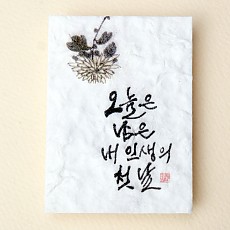 오늘은
남은
내 인생의
첫 날